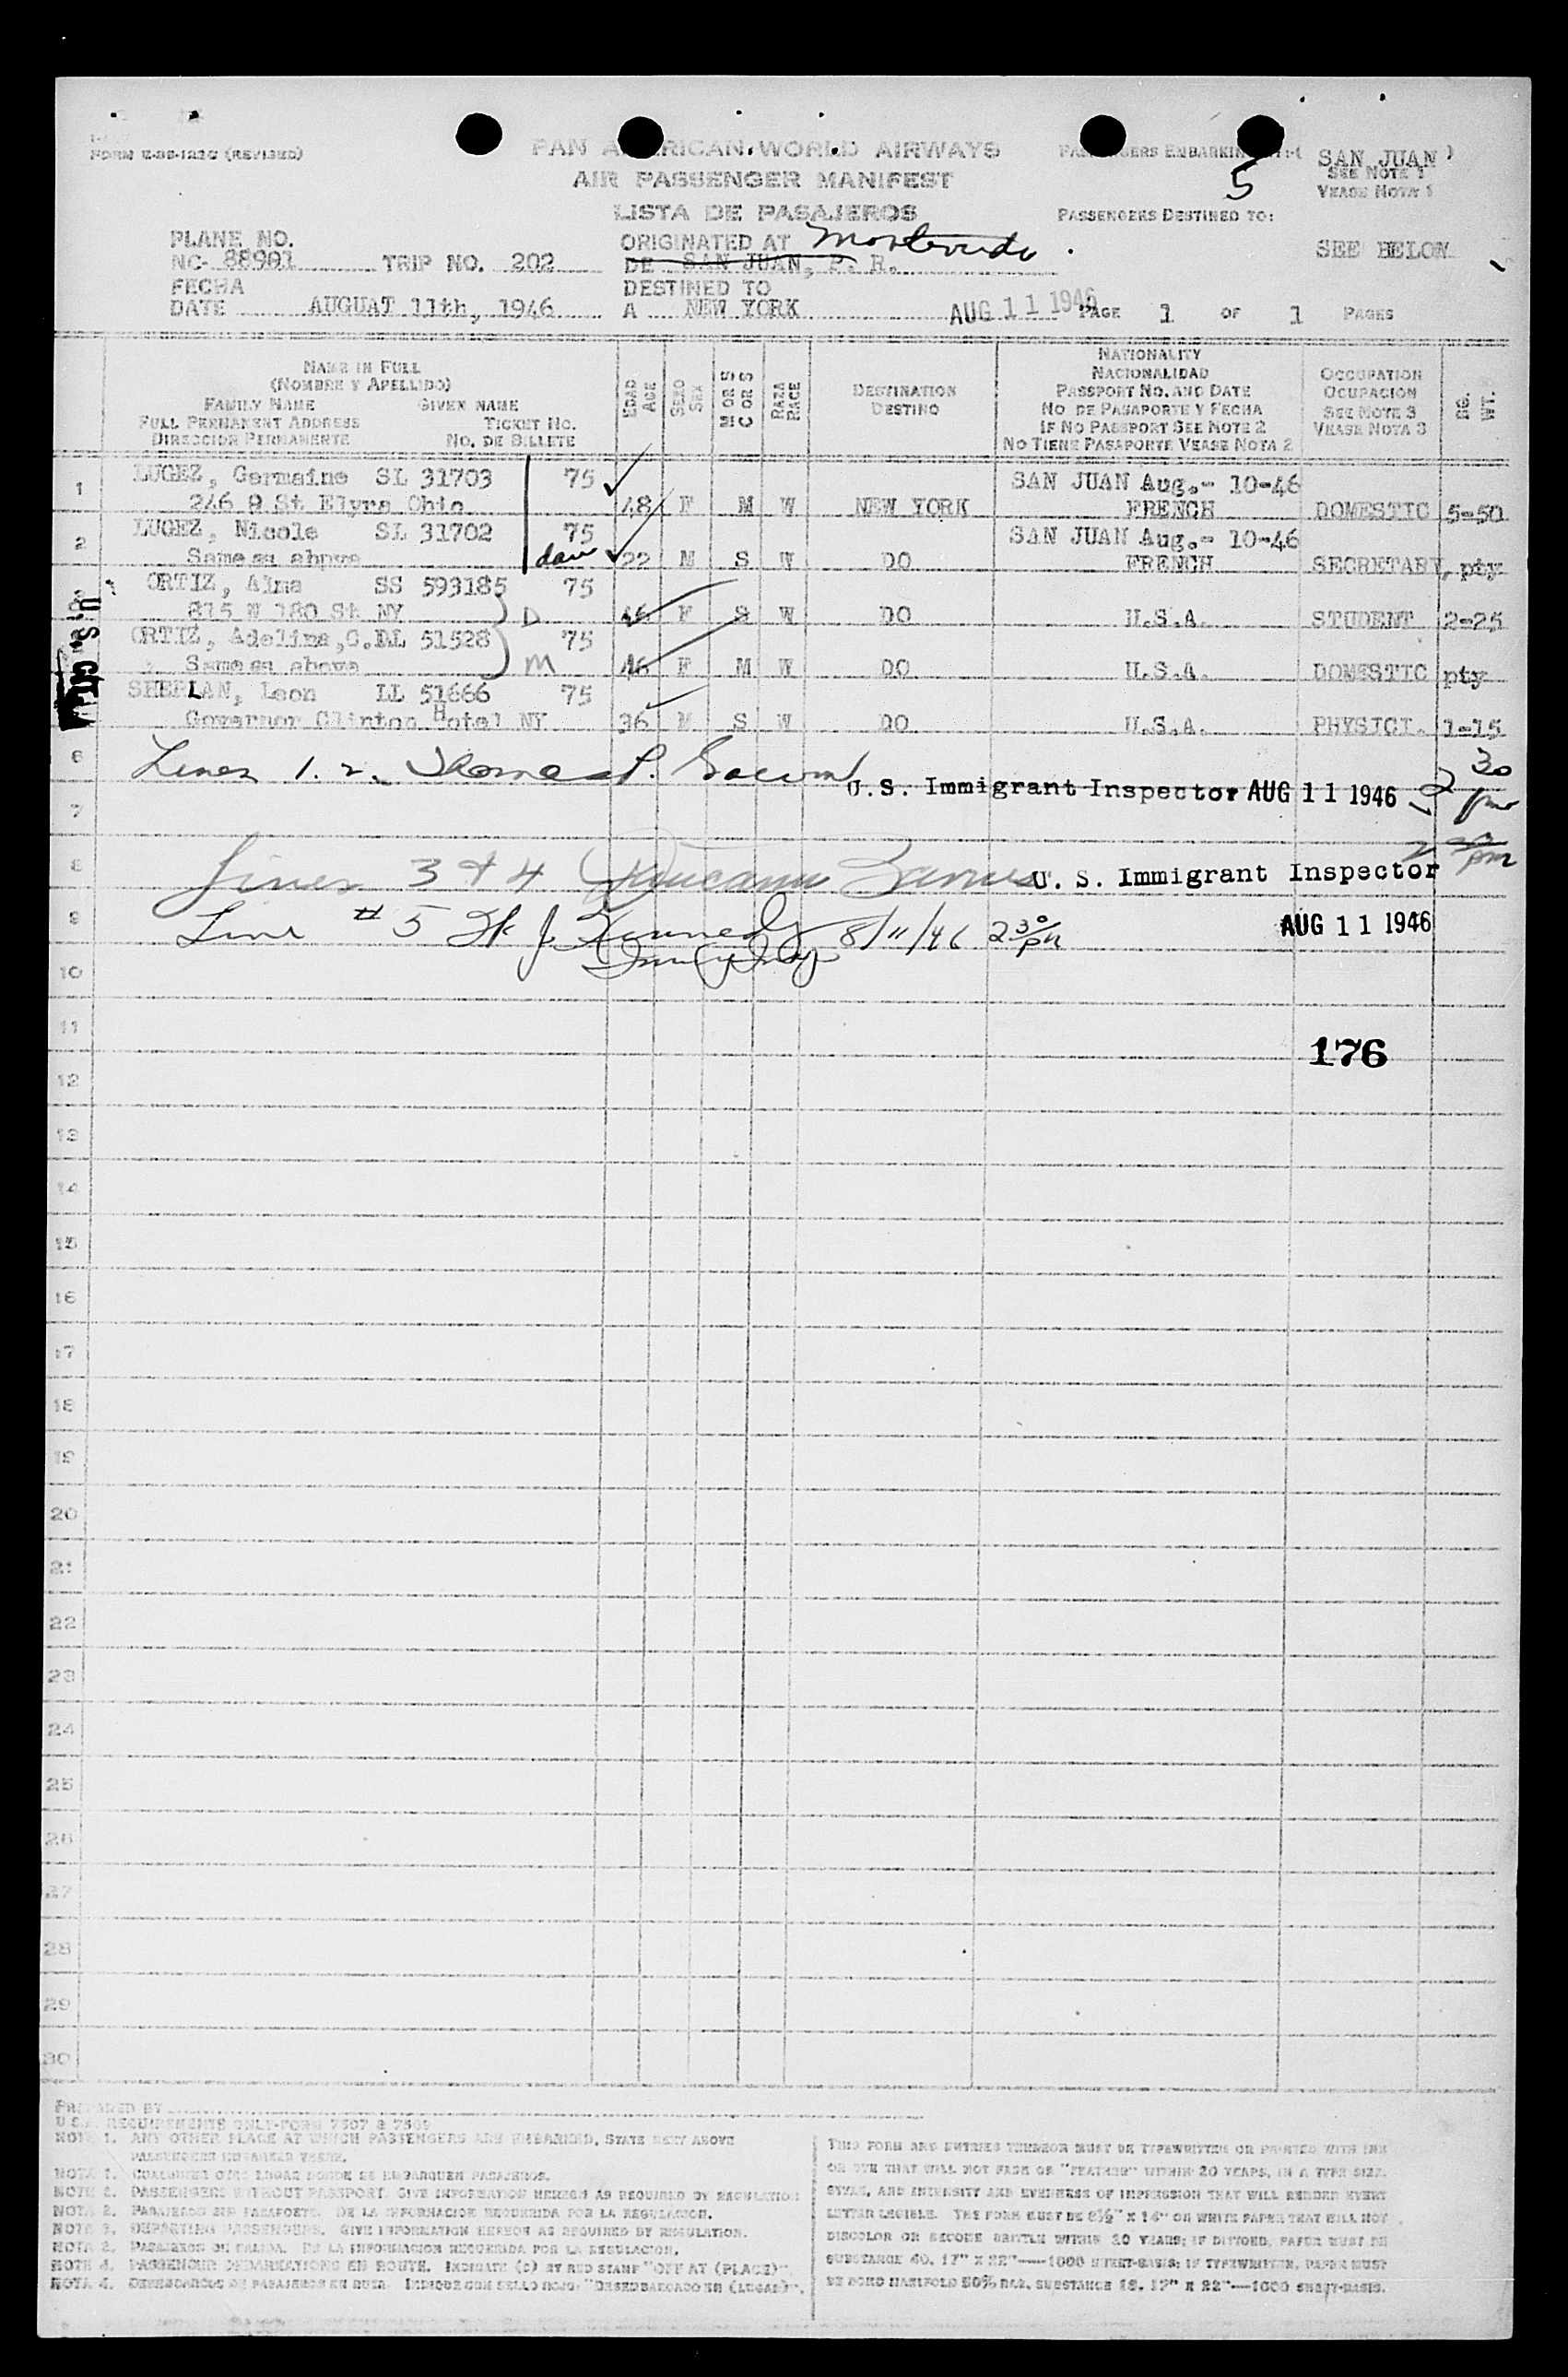 FORM E-98-122C (REVISED)
PAN AMERICAN WORLD AIRWAYS
AIR PASSENGER MANIFEST
LISTA DE PASAJEROS
PASSENGERS EMBARKING AT:( SAN JUAN )
SEE NOTE 1
VEASE NOTA 1
5
PASSENGERS DESTINED TO:
SEE BELOW
PLANE NO.
NC- 88901 TRIP NO. 202
ORIGINATED AT Montevideo
DE SAN JUAN, P. R.
FECHA
DATE AUGUAT 11th, 1946
DESTINED TO
A NEW YORK
AUG 11 1946
PAGE 1 OF 1 PAGES
NAME IN FULL
(NOMBRE Y APELLIDO)
FAMILY NAME GIVEN NAME
FULL PERMANENT ADDRESS TICKET NO.
DIRECCION PERMANENTE NO. DE BILLETE
EDAD AGE
SEXO SEX
M OR S
C OR S
RAZA RACE
DESTINATION
DESTINO
NATIONALITY
NACIONALIDAD
PASSPORT NO. AND DATE
NO DE PASAPORTE Y FECHA
IF NO PASSPORT SEE NOTE 2
NO TIENE PASAPORTE VEASE NOTA 2
OCCUPATION
OCUPACION
SEE NOTE 3
VEASE NOTA 3
BG. WT.
1 LUGEZ, Germaine SL 31703 75 SAN JUAN Aug.- 10-46
246 8 St Elyra Ohio 48 F M W NEW YORK FRENCH DOMESTIC 5-50
2 LUGEZ, Nicole SL 31702 75 SAN JUAN Aug.- 10-46
Same as above dau 22 M S W DO FRENCH SECRETARY, pty
ORTIZ, Alma SS 593185 75
815 W 180 St NY D 16 F S W DO U.S.A. STUDENT 2-25
ORTIZ, Adelina,G.DL 51528 75
Same as above M 46 F M W DO U.S.A. DOMESTIC pty
SHERLAN, Leon LL 51666 75
Governor Clinton Hotel NY 36 M S W DO U.S.A. PHYSICI. 1-15
U.S. CIT.
6 Lines 1. 2.
U.S. Immigrant Inspector AUG 11 1946 2 30 pm
7
8 Lines 3 & 4
U. S. Immigrant Inspector
9 Line # 5 J. Kennedy 8/11/46 2 30 pm
AUG 11 1946
10
11
176
12
13
14
15
16
17
18
19
20
21
22
23
24
25
26
27
28
29
30
PREPARED BY
U.S. REQUIREMENTS ONLY-FORM 7507 & 7509
NOTE 1. ANY OTHER PLACE AT WHICH PASSENGERS ARE EMBARKED, STATE NEXT ABOVE
PASSENGERS EMBARKED THERE.
NOTA 1. CUALQUIER OTRO LUGAR DONDE SE EMBARQUEN PASAJEROS.
NOTE 2. PASSENGERS WITHOUT PASSPORT. GIVE INFORMATION HEREON AS REQUIRED BY REGULATION
NOTA 2. PASAJEROS SIN PASAPORTE. DE LA INFORMACION REQUERIDA POR LA REGULACION.
NOTE 3. DEPARTING PASSENGERS. GIVE INFORMATION HEREON AS REQUIRED BY REGULATION.
NOTA 3. PASAJEROS DE SALIDA. DE LA INFORMACION REQUERIDA POR LA REGULACION.
NOTE 4. PASSENGER DEBARKATIONS EN ROUTE. INDICATE (C) BY RED STAMP "OFF AT (PLACE)".
NOTA 4. DESEMBARCOS DE PASAJEROS EN RUTA. INDIQUE CON SELLO ROJO: "DESEMBARCADO EN (LUGAR)".
THIS FORM AND ENTRIES THEREON MUST BE TYPEWRITTEN OR PRINTED WITH INK
OR DYE THAT WILL NOT FADE OR "FEATHER" WITHIN 20 YEARS, IN A TYPE SIZE,
STYLE, AND INTENSITY AND EVENNESS OF IMPRESSION THAT WILL RENDER EVERY
LETTER LEGIBLE. THE FORM MUST BE 8½" X 14" ON WHITE PAPER THAT WILL NOT
DISCOLOR OR BECOME BRITTLE WITHIN 20 YEARS; IF DITTOED, PAPER MUST BE
SUBSTANCE 40, 17" X 22"—1000 SHEET-BASIS; IF TYPEWRITTEN, PAPER MUST
BE BOND MANIFOLD 50% RAG, SUBSTANCE 16, 17" X 22"—1000 SHEET-BASIS.